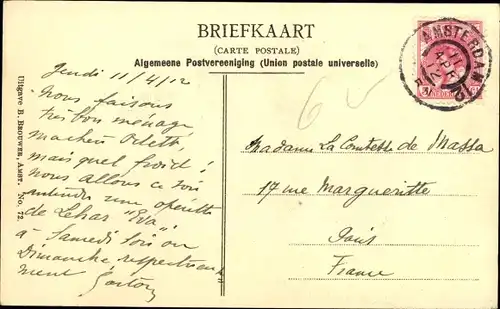 BRIEFKAART
(CARTE POSTALE)
Algemeene Postvereeniging (Union postale universelle)
Jeudi 11/4/12
Nous faisons
très bon ménage
ma chère Odette,
mais quel froid!
Nous allons ce soir
entendre une opérette
de Lehar "Eva"
à Samedi soir ou
Dimanche respectueuse
ment Gaston
Madame La Comtesse de Massa
17 rue Margueritte
Paris
France
Uitgave B. Brouwer, Amst. No. 72.
AMSTERDAM
NEDERL
6